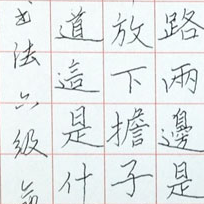 路兩邊是
放下擔子
道這是什
法六級